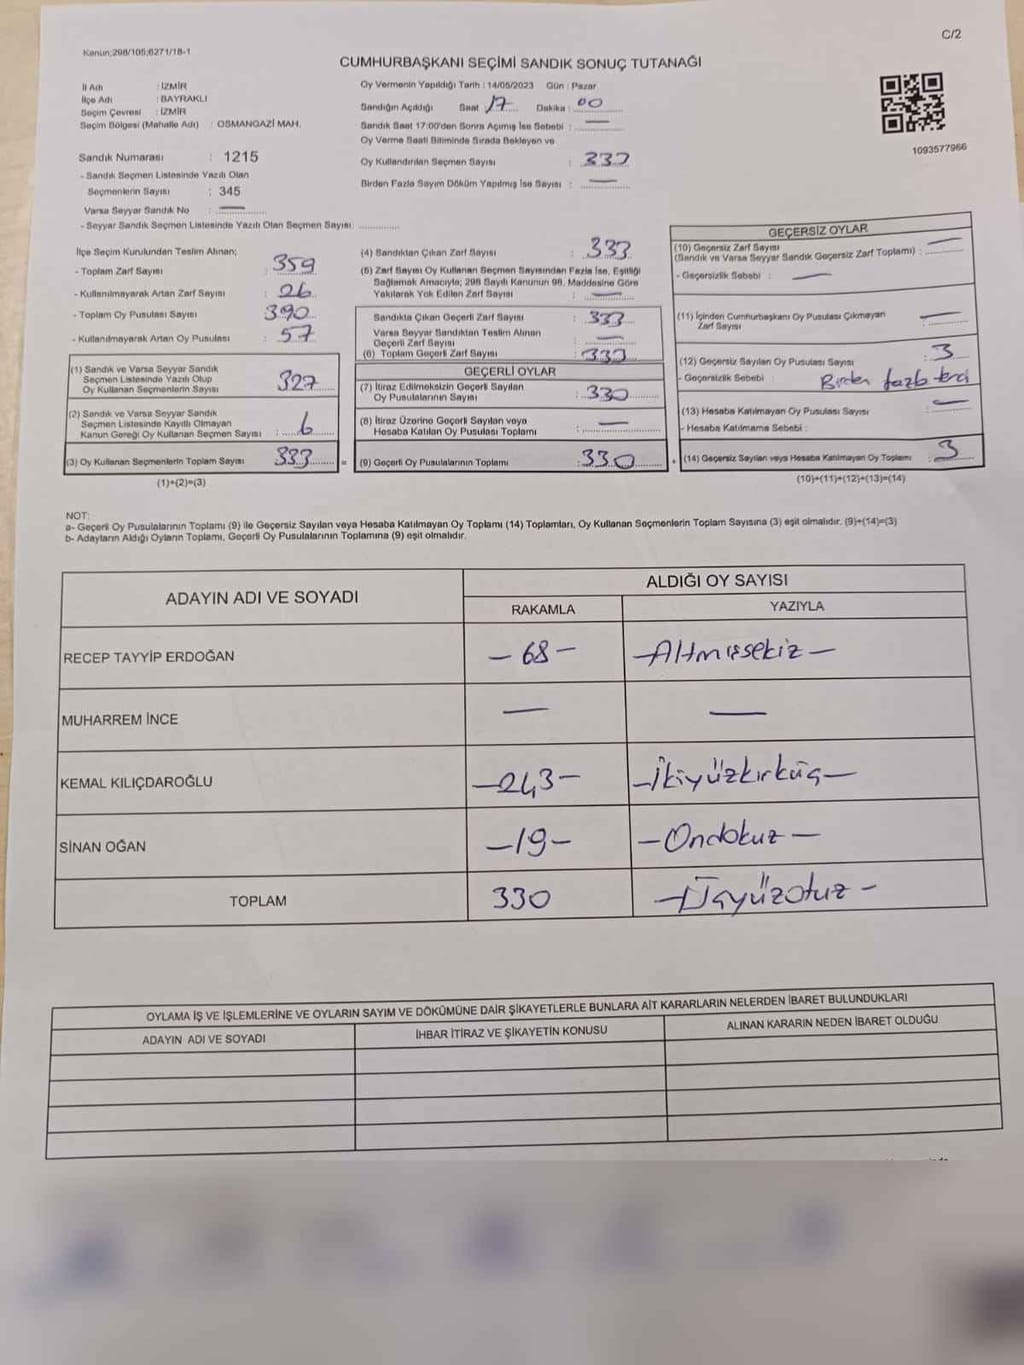 C/2
Kanun;298/105;6271/18-1
CUMHURBAŞKANI SEÇİMİ SANDIK SONUÇ TUTANAĞI
İl Adı : İZMİR
İlçe Adı : BAYRAKLI
Seçim Çevresi : İZMİR
Seçim Bölgesi (Mahalle Adı) : OSMANGAZİ MAH.
Sandık Numarası : 1215
- Sandık Seçmen Listesinde Yazılı Olan
Seçmenlerin Sayısı : 345
Varsa Seyyar Sandık No : —
- Seyyar Sandık Seçmen Listesinde Yazılı Olan Seçmen Sayısı:
Oy Vermenin Yapıldığı Tarih : 14/05/2023 Gün : Pazar
Sandığın Açıldığı Saat 17 Dakika : 00
Sandık Saat 17:00'den Sonra Açımış İse Sebebi : —
Oy Verme Saati Bitiminde Sırada Bekleyen ve
Oy Kullandırılan Seçmen Sayısı : 333
Birden Fazla Sayım Döküm Yapılmış İse Sayısı : —
1093577966
İlçe Seçim Kurulundan Teslim Alınan;
- Toplam Zarf Sayısı : 359
- Kullanılmayarak Artan Zarf Sayısı : 26
- Toplam Oy Pusulası Sayısı : 390
- Kullanılmayarak Artan Oy Pusulası : 57
(1) Sandık ve Varsa Seyyar Sandık
Seçmen Listesinde Yazılı Olup
Oy Kullanan Seçmenlerin Sayısı : 327
(2) Sandık ve Varsa Seyyar Sandık
Seçmen Listesinde Kayıtlı Olmayan
Kanun Gereği Oy Kullanan Seçmen Sayısı : 6
(3) Oy Kullanan Seçmenlerin Toplam Sayısı : 333
(1)+(2)=(3)
(4) Sandıktan Çıkan Zarf Sayısı : 333
(5) Zarf Sayısı Oy Kullanan Seçmen Sayısından Fazla İse, Eşitliği
Sağlamak Amacıyla; 298 Sayılı Kanunun 98. Maddesine Göre
Yakılarak Yok Edilen Zarf Sayısı : —
Sandıkta Çıkan Geçerli Zarf Sayısı : 333
Varsa Seyyar Sandıktan Teslim Alınan
Geçerli Zarf Sayısı : —
(6) Toplam Geçerli Zarf Sayısı : 333
GEÇERLİ OYLAR
(7) İtiraz Edilmeksizin Geçerli Sayılan
Oy Pusulalarının Sayısı : 330
(8) İtiraz Üzerine Geçerli Sayılan veya
Hesaba Katılan Oy Pusulası Toplamı : —
= (9) Geçerli Oy Pusulalarının Toplamı : 330
GEÇERSİZ OYLAR
(10) Geçersiz Zarf Sayısı
(Sandık ve Varsa Seyyar Sandık Geçersiz Zarf Toplamı) : —
- Geçersizlik Sebebi : —
(11) İçinden Cumhurbaşkanı Oy Pusulası Çıkmayan
Zarf Sayısı : —
(12) Geçersiz Sayılan Oy Pusulası Sayısı : 3
- Geçersizlik Sebebi : Birden fazla
(13) Hesaba Katılmayan Oy Pusulası Sayısı : —
- Hesaba Katılmama Sebebi :
+ (14) Geçersiz Sayılan veya Hesaba Katılmayan Oy Toplamı : 3
(10)+(11)+(12)+(13)=(14)
NOT:
a- Geçerli Oy Pusulalarının Toplamı (9) ile Geçersiz Sayılan veya Hesaba Katılmayan Oy Toplamı (14) Toplamları, Oy Kullanan Seçmenlerin Toplam Sayısına (3) eşit olmalıdır. (9)+(14)=(3)
b- Adayların Aldığı Oyların Toplamı, Geçerli Oy Pusulalarının Toplamına (9) eşit olmalıdır.
ADAYIN ADI VE SOYADI
ALDIĞI OY SAYISI
RAKAMLA YAZIYLA
RECEP TAYYİP ERDOĞAN — 68 — — Altmışsekiz —
MUHARREM İNCE — —
KEMAL KILIÇDAROĞLU — 243 — — İkiyüzkırküç —
SİNAN OĞAN — 19 — — Ondokuz —
TOPLAM 330 — Üçyüzotuz —
OYLAMA İŞ VE İŞLEMLERİNE VE OYLARIN SAYIM VE DÖKÜMÜNE DAİR ŞİKAYETLERLE BUNLARA AİT KARARLARIN NELERDEN İBARET BULUNDUKLARI
ADAYIN ADI VE SOYADI İHBAR İTİRAZ VE ŞİKAYETİN KONUSU ALINAN KARARIN NEDEN İBARET OLDUĞU